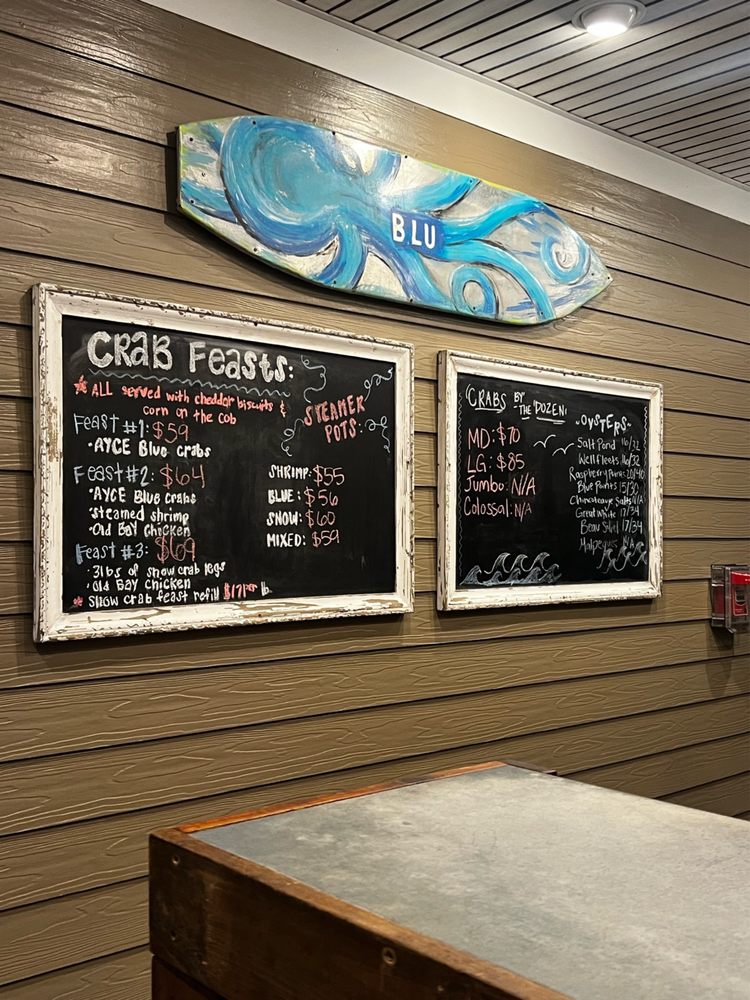 BLU
CRAB FEASTS:
ALL served with cheddar biscuits &
corn on the cob
Feast #1: $59
•AYCE Blue crabs
Feast #2: $64
•AYCE Blue crabs
•steamed shrimp
•Old Bay Chicken
Feast #3: $69
•3lbs of snow crab legs
•Old Bay Chicken
Snow crab feast refill $17 per lb.
STEAMER
POTS:
SHRIMP: $55
BLUE: $56
SNOW: $60
MIXED: $59
CRABS BY
THE DOZEN:
MD: $70
LG: $85
Jumbo: N/A
Colossal: N/A
~OYSTERS~
Salt Pond 16/32
Wellfleets 16/32
Raspberry Points
Blue Points 15/30
Chincoteague Salts N/A
Great White 17/34
Beau Soleil 17/34
Malpeques N/A